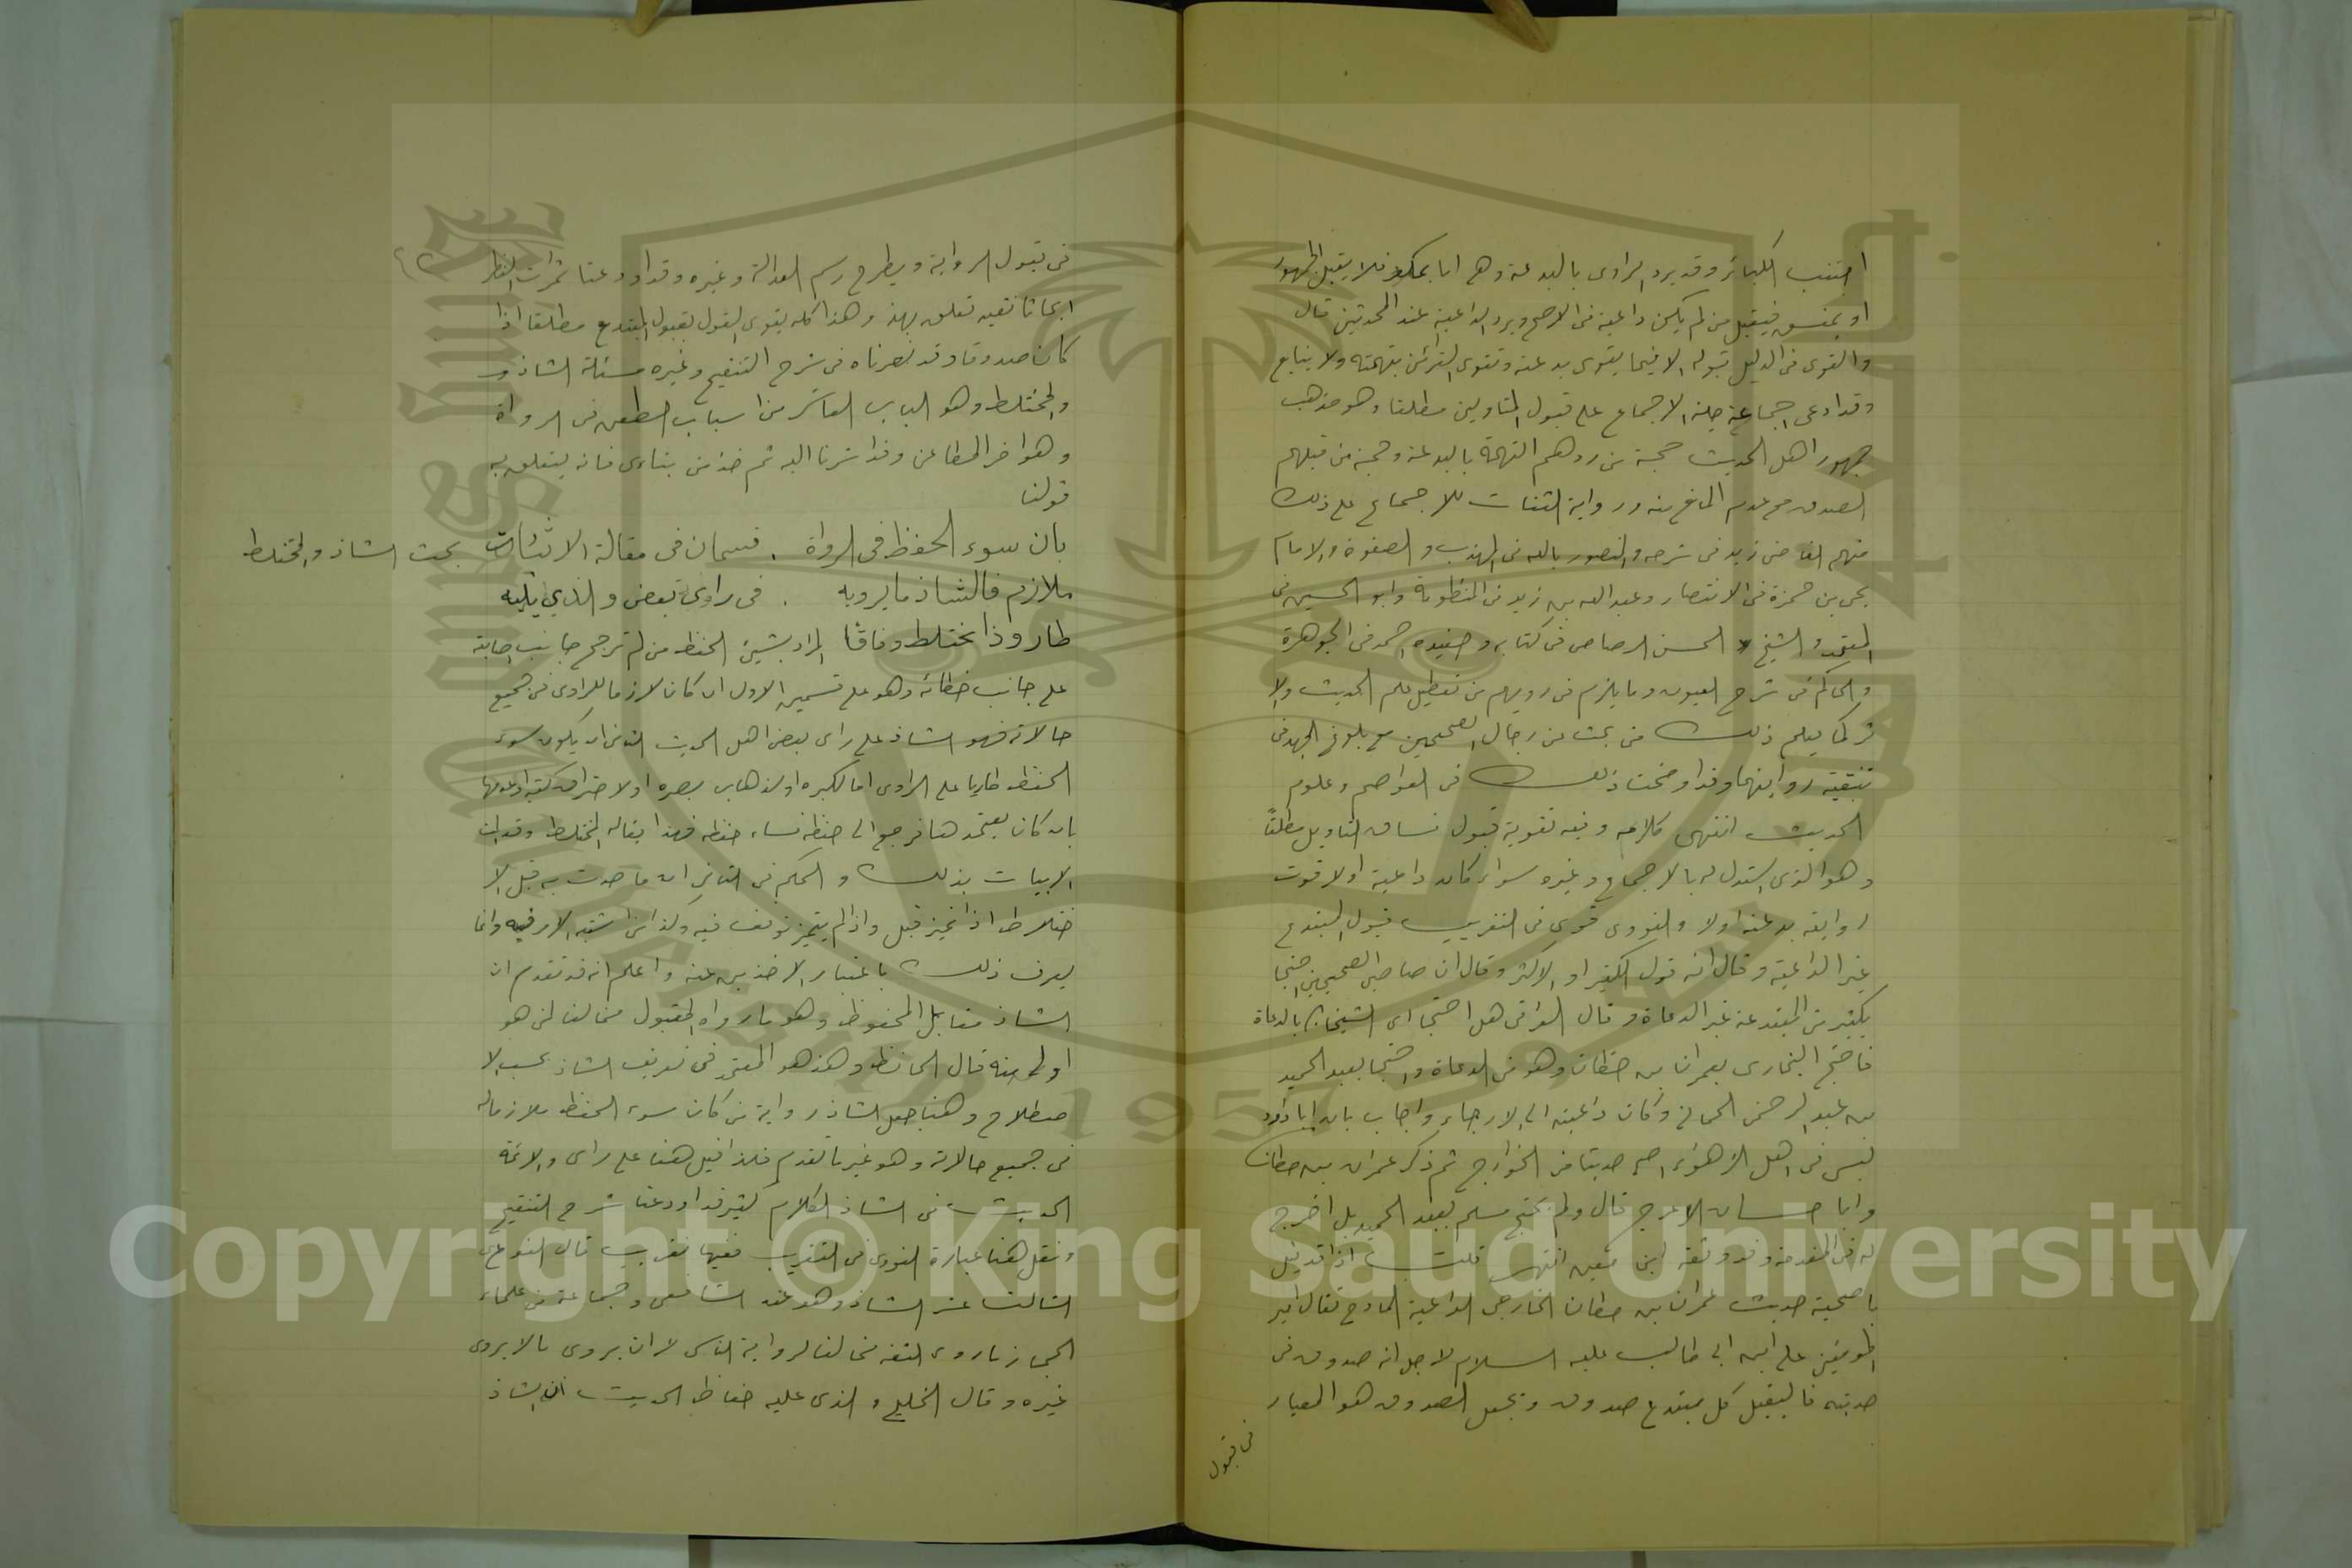 اجتنب الكبائر وقد يرد الراوي بالبدعة وهي اما بمكفر فلا يقبل الجمهور
او بمفسق فيقبل من لم يكن داعية في الاصح ويرد الداعية عند المحدثين قال
والقوى في الدليل قبوله الا فيما يقوى بدعته وتقوى القرائن بتهمته ولا يتابع
وقد ادعى جماعة جلة الاجماع على قبول المتاولين مطلقا وهو مذهب
جمهور اهل الحديث حجة من ردهم التهمة بالبدعة وحجة من قبلهم
الصدق مع عدم المانع منه ورواية الثقات للاجماع على ذلك
منهم القاضي زيد في شرحه والمنصور بالله في المهذب والصفوة والامام
يحى بن حمزة في الانتصار وعبد الله بن زيد في المنظومة وابو الحسين في
المعتمد والشيخ الحسن الرصاص في كتابه وحفيده احمد في الجوهرة
والحاكم في شرح العيون وما يلزم في ردهم من تعطيل علم الحديث والا
ثر كما يعلم ذلك من بحث عن رجال الصحيحين مع بلوغ الجهد في
تنقية رواتهما وقد اوضحت ذلك في العواصم وعلوم
الحديث انتهى كلامه وفيه تقوية قبول فساق التاويل مطلقًا
وهو الذي استدل له بالاجماع وغيره سواء كان داعية او لا قوت
روايته بدعته او لا والنووى قوى في التقريب قبول المبتدع
غير الداعية وقال انه قول الكثير او الاكثر وقال ان صاحبي الصحيحين احتجا
بكثير من المبتدعة غير الدعاة وقال العراقى هل احتجا اى الشيخان بالدعاة
فاحتج البخارى بعمران بن حطان وهو من الدعاة واحتجا بعبد الحميد
بن عبد الرحمن الحماني وكان داعية الى الارجاء واجاب بان ابا داود
ليس في اهل الاهواء اصح حديثا من الخوارج ثم ذكر عمران بن حطان
وابا حسان الاعرج قال ولم يحتج مسلم بعبد الحميد بل اخرج
له في المقدمة وقد وثقه ابن معين انتهى قلت اذا قد قيل
باصحية حديث عمران بن حطان الخارجى الداعية المادح لقاتل امير
المومنين على ابن ابى طالب عليه السلام لاجل انه صدوق في
حديثه فاليقبل كل مبتدع صدوق ويجعل الصدوق هو المعيار
في قبول
في قبول الرواية ويطرح رسم العدالة وغيره وقد اودعنا ثمرات النظر
ابحاثا نفيسه تعلق بهذا وهذا كله يقوى القول بقبول المبتدع مطلقا اذا
كان صدوقا وقد نصرناه في شرح التنقيح وغيره مسئلة الشاذ و
والمختلط وهو الباب العاشر من اسباب الطعن في الرواة
وهو اخر المطاعن وقد اشرنا اليه ثم خذ من بناءى فانه يتعلق به
قولنا
بان سوء الحفظ في الرواة . قسمان في مقالة الاثبات
بحث الشاذ والمختلط
ملازم فالشاذ ما يرويه . في راى بعض والذي يليه
طار وذا مختلط وفاقًا المراد بسيئ الحفظ من لم ترجح جانب اصابته
على جانب خطائه وهو على قسمين الاول ان كان لازما للراوى في جميع
حالاته فهو الشاذ على راى بعض اهل الحديث الثانى ان يكون سوء
الحفظ طاريا على الراوى اما لكبره او لذهاب بصره او لاحتراق كتبه او عدمها
بان كان يعتمدها فرجع الى حفظه فساء حفظه فهذا يقاله المختلط وقد ابان
الابيات بذلك والحكم في الثاني ان ما حدث به قبل الا
ختلاط اذا تميز قبل واذا لم يتميز توقف فيه وكذا من اشتبه الامر فيه وانما
يعرف ذلك باعتبار الاخذين عنه واعلم انه قد تقدم ان
الشاذ مقابل المحفوظ وهو ما رواه المقبول مخالفا لمن هو
اولى منه قال الحافظ وهذا هو المعتمد في تعريف الشاذ بحسب الا
صطلاح وهنا جعل الشاذ رواية من كان سوء الحفظ ملازما له
في جميع حالاته وهو غير ما تقدم فلذا قيل هنا على راى ولائمة
الحديث في الشاذ الكلام كثير قد اودعنا شرح التنقيح
وننقل هنا عبارة النووى في التقريب ففيها تقريب قال النوع
الثالث عشر الشاذ وهو عند الشافعى وجماعة من علماء
الحجاز ما روى الثقة مخالفا لرواية الناس لا ان يروى ما لا يروى
غيره وقال الخليلي والذى عليه حفاظ الحديث ان الشاذ
Copyright © King Saud University
1957